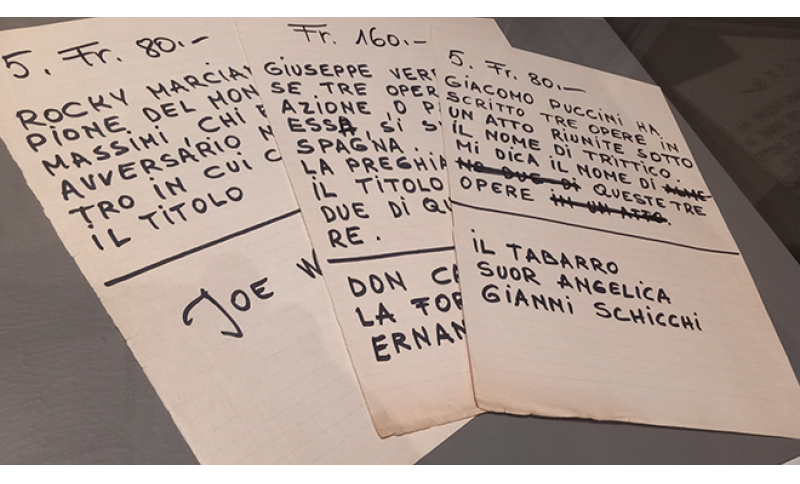 5. Fr. 80.-
ROCKY MARCIA
PIONE DEL MON
MASSIMI, CHI
AVVERSARIO N
TRO IN CUI C
IL TITOLO
JOE W
Fr. 160.-
GIUSEPPE VER
SE TRE OPER
AZIONE, O P
ESSA, SI S
SPAGNA.
LA PREGHI
IL TITOLO
DUE DI QU
RE.
DON C
LA FOR
ERNAN
5. Fr. 80.-
GIACOMO PUCCINI HA
SCRITTO TRE OPERE IN
UN ATTO RIUNITE SOTTO
IL NOME DI TRITTICO.
MI DICA IL NOME DI ALME-
NO DUE DI QUESTE TRE
OPERE IN UN ATTO.
IL TABARRO
SUOR ANGELICA
GIANNI SCHICCHI